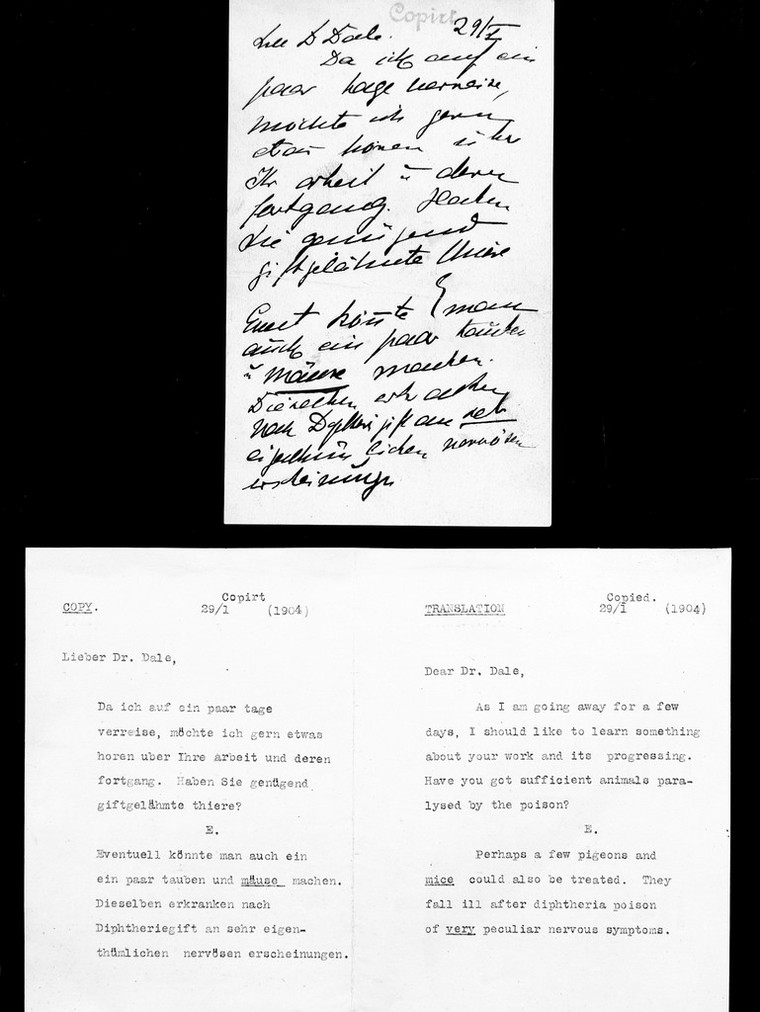 Copirt
29/I
L[ie]ber D Dale.
Da ich auf ein
paar tage verreise,
möchte ich gern
etwas hören über
Ihr arbeit u deren
fortgang. Haben
Sie genügend
giftgelähmte thiere
E
Event könnte man
auch ein paar tauben
u mäuse machen.
Dieselben erkranken
nach Diphtheriegift an sehr
eigenthümlichen nervösen
erscheinungen
COPY.
Copirt
29/1 (1904)
Lieber Dr. Dale,
Da ich auf ein paar tage
verreise, möchte ich gern etwas
horen uber Ihre arbeit und deren
fortgang. Haben Sie genügend
giftgelähmte thiere?
E.
Eventuell könnte man auch ein
ein paar tauben und mäuse machen.
Dieselben erkranken nach
Diphtheriegift an sehr eigen-
thümlichen nervösen erscheinungen.
TRANSLATION
Copied.
29/1 (1904)
Dear Dr. Dale,
As I am going away for a few
days, I should like to learn something
about your work and its progressing.
Have you got sufficient animals para-
lysed by the poison?
E.
Perhaps a few pigeons and
mice could also be treated. They
fall ill after diphtheria poison
of very peculiar nervous symptoms.